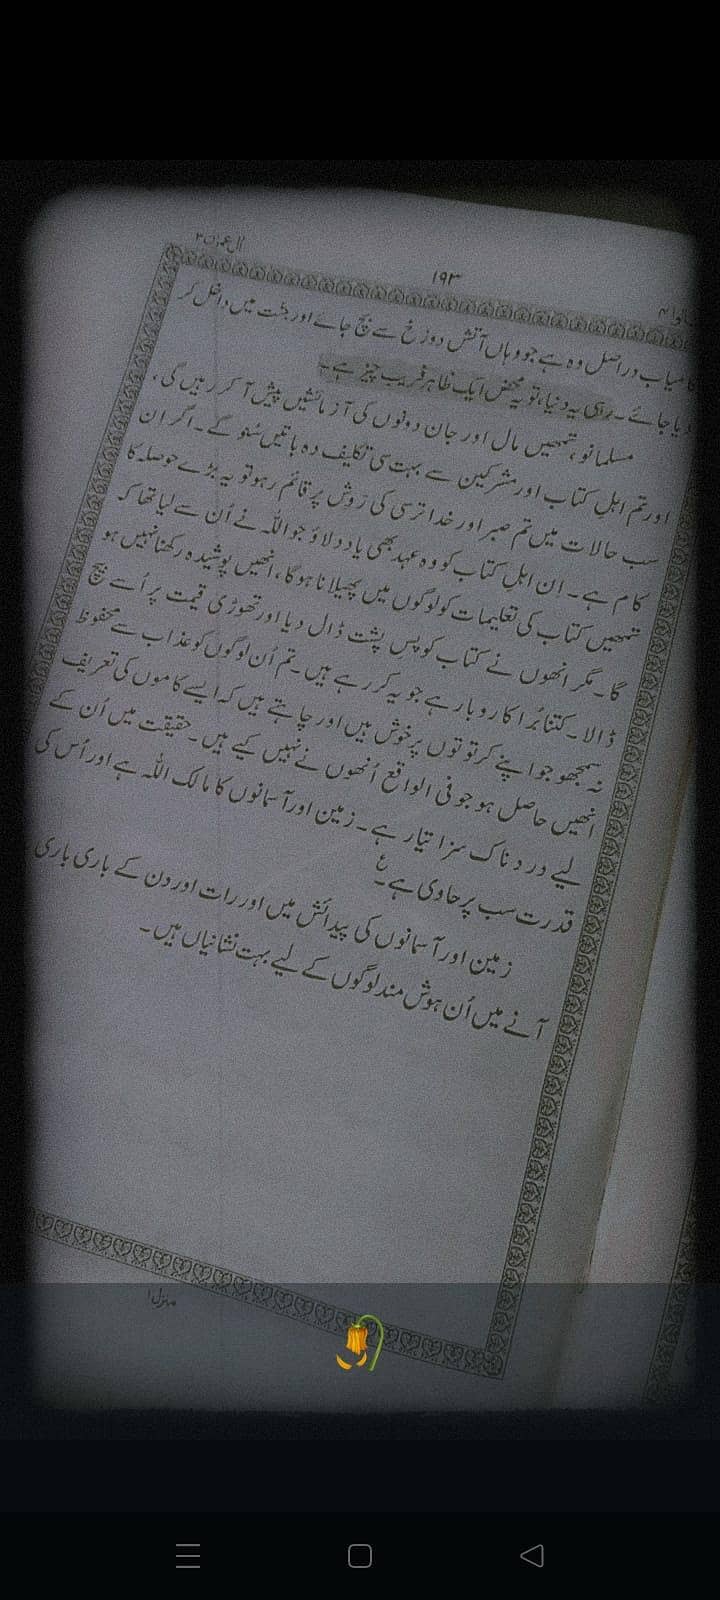 اٰل عمرٰن ۳
۱۹۳
کامیاب دراصل وہ ہے جو وہاں آتش دوزخ سے بچ جائے اور جنت میں داخل کر
دیا جائے۔ رہی یہ دنیا، تو یہ محض ایک ظاہر فریب چیز ہے۔
مسلمانو، تمھیں مال اور جان دونوں کی آزمائشیں پیش آ کر رہیں گی،
اور تم اہلِ کتاب اور مشرکین سے بہت سی تکلیف دہ باتیں سُنو گے۔ اگر ان
سب حالات میں تم صبر اور خدا ترسی کی رَوِش پر قائم رہو تو یہ بڑے حوصلہ کا
کام ہے۔ اِن اہلِ کتاب کو وہ عہد بھی یاد دلاؤ جو اللہ نے اُن سے لیا تھا کہ
تمھیں کتاب کی تعلیمات کو لوگوں میں پھیلانا ہوگا، انھیں پوشیدہ رکھنا نہیں ہو
گا۔ مگر انھوں نے کتاب کو پس پشت ڈال دیا اور تھوڑی قیمت پر اُسے بیچ
ڈالا۔ کتنا بُرا کاروبار ہے جو یہ کر رہے ہیں۔ تم اُن لوگوں کو عذاب سے محفوظ
نہ سمجھو جو اپنے کرتوتوں پر خوش ہیں اور چاہتے ہیں کہ ایسے کاموں کی تعریف
انھیں حاصل ہو جو فی الواقع اُنھوں نے نہیں کیے ہیں۔ حقیقت میں اُن کے
لیے دردناک سزا تیار ہے۔ زمین اور آسمانوں کا مالک اللہ ہے اور اُس کی
قدرت سب پر حاوی ہے۔ ع
زمین اور آسمانوں کی پیدائش میں اور رات اور دن کے باری باری
آنے میں اُن ہوش مند لوگوں کے لیے بہت نشانیاں ہیں۔
منزل ۱